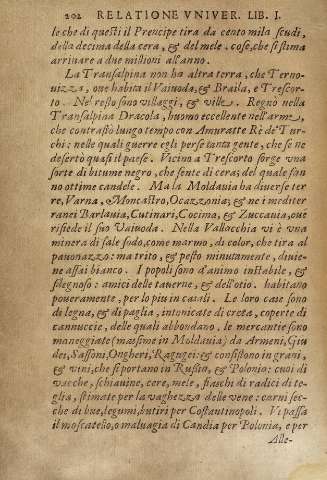 202 RELATIONE VNIVER. LIB. I.
le che di questi il Prencipe tira da cento mila scudi,
della decima della cera, & del mele. cose, che si stima
arriuare a due millioni all'anno.
La Transalpina non ha altra terra, che Terno-
uizza, oue habita il Vaiuoda, & Braila, e Trescor-
to. Nel resto sono villaggi, & ville. Regnò nella
Transalpina Dracola, huomo eccellente nell'arme,
che contrastò lungo tempo con Amuratte Rè de'Tur-
chi: nelle quali guerre egli perse tanta gente, che se ne
desertò quasi il paese. Vicino a Trescorto sorge vna
sorte di bitume negro, che sente di cera; del quale fan
no ottime candele. Ma la Moldauia ha diuerse ter
re, Varna, Moncastro, Ocazzonia; & ne i mediter
ranei Barlauia, Cutinari, Cocimo, & Zuccauia, oue
risiede il suo Vaiuoda. Nella Vallocchia vi è vna
minera di sale sodo, come marmo, di color, che tira al
pauonazzo: ma trito, & pesto minutamente, diuie-
ne assai bianco. I popoli sono d'animo instabile, &
sdegnoso: amici delle tauerne, & dell'otio. habitano
poueramente, per lo piu in casali. Le lor case sono
di legna, & di paglia, intonicate di creta, coperte di
cannuccie, delle quali abbondano. le mercantie sono
maneggiate (massime in Moldauia) da Armeni, Giu
dei, Sassoni, Ongheri, Ragugei: & consistono in grani,
& vini, che si portano in Russia, & Polonia: cuoi di
vacche, schiauine, cere, mele, fiaschi di radici di te-
glia, stimate per la vaghezza delle vene: carni sec-
che di bue, legumi, butiri per Costantinopoli. Vi passa
il moscatello, o maluagia di Candia per Polonia, e per
Alle-